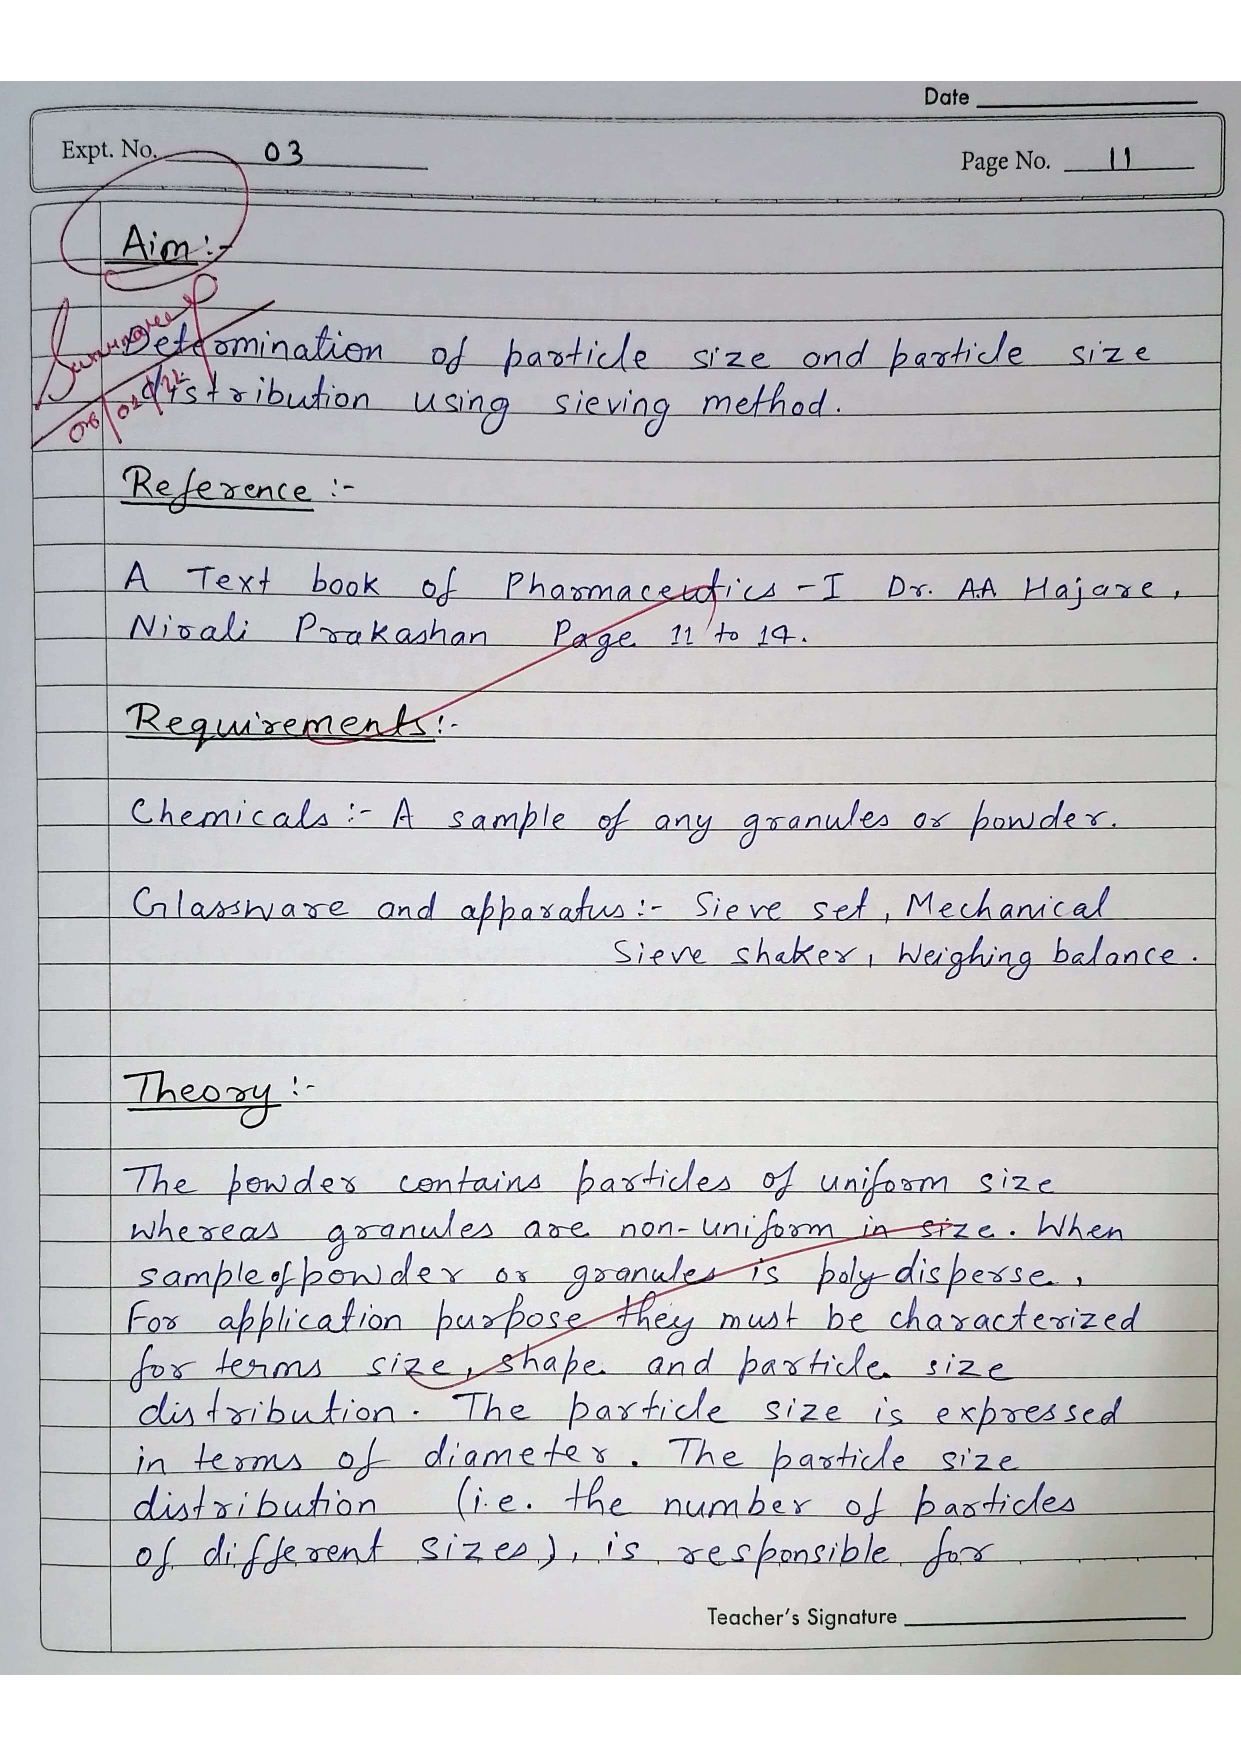 Date
Expt. No. 03
Page No. 11
Aim :-
Determination of particle size and particle size
distribution using sieving method.
06/02/22
Reference :-
A Text book of Pharmaceutics - I Dr. A.A Hajare,
Nirali Prakashan Page 11 to 14.
Requirements :-
Chemicals :- A sample of any granules or powder.
Glassware and apparatus :- Sieve set, Mechanical
Sieve shaker, Weighing balance.
Theory :-
The powder contains particles of uniform size
whereas granules are non-uniform in size. When
sample of powder or granules is poly disperse,
For application purpose they must be characterized
for terms size, shape and particle size
distribution. The particle size is expressed
in terms of diameter. The particle size
distribution (i.e. the number of particles
of different sizes), is responsible for
Teacher's Signature